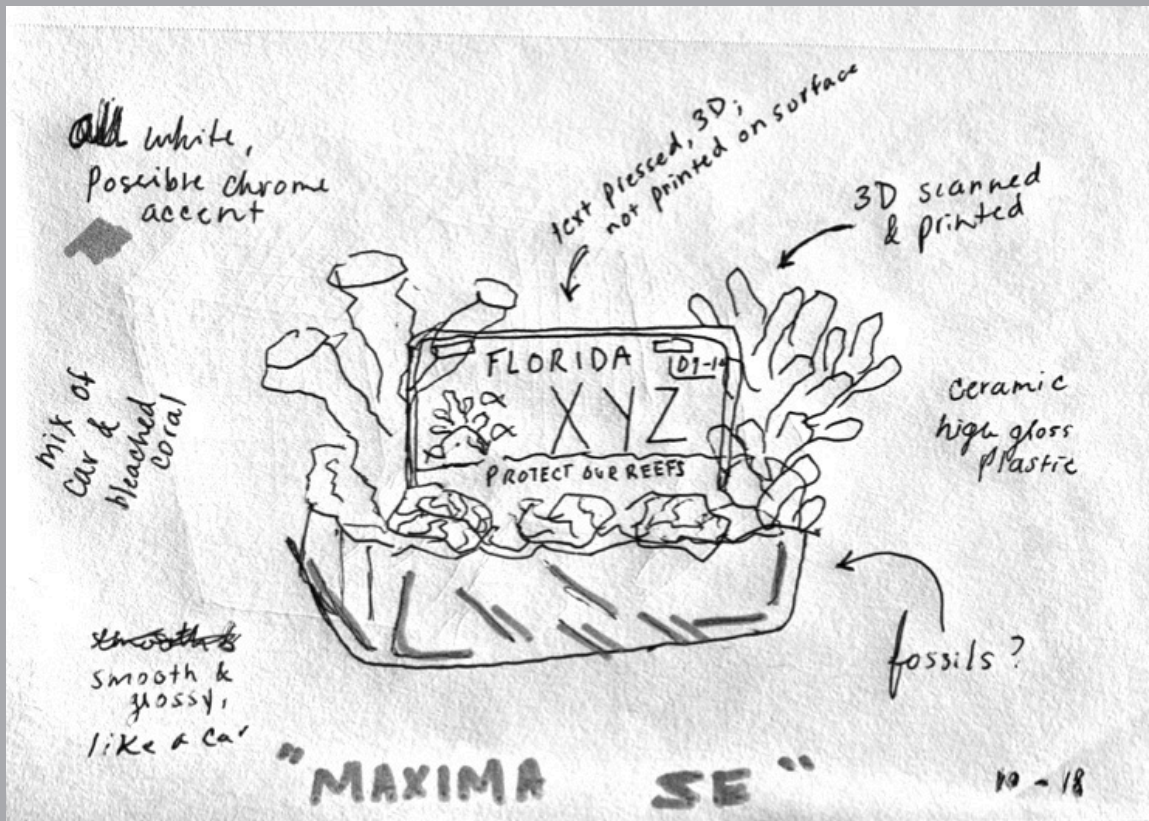 all white,
possible chrome
accent
text pressed, 3D;
not printed on surface
3D scanned
& printed
mix of
car &
bleached
coral
FLORIDA
09-1
XYZ
PROTECT OUR REEFS
ceramic
high gloss
plastic
smooth &
glossy,
like a car
fossils?
"MAXIMA SE"
- 18